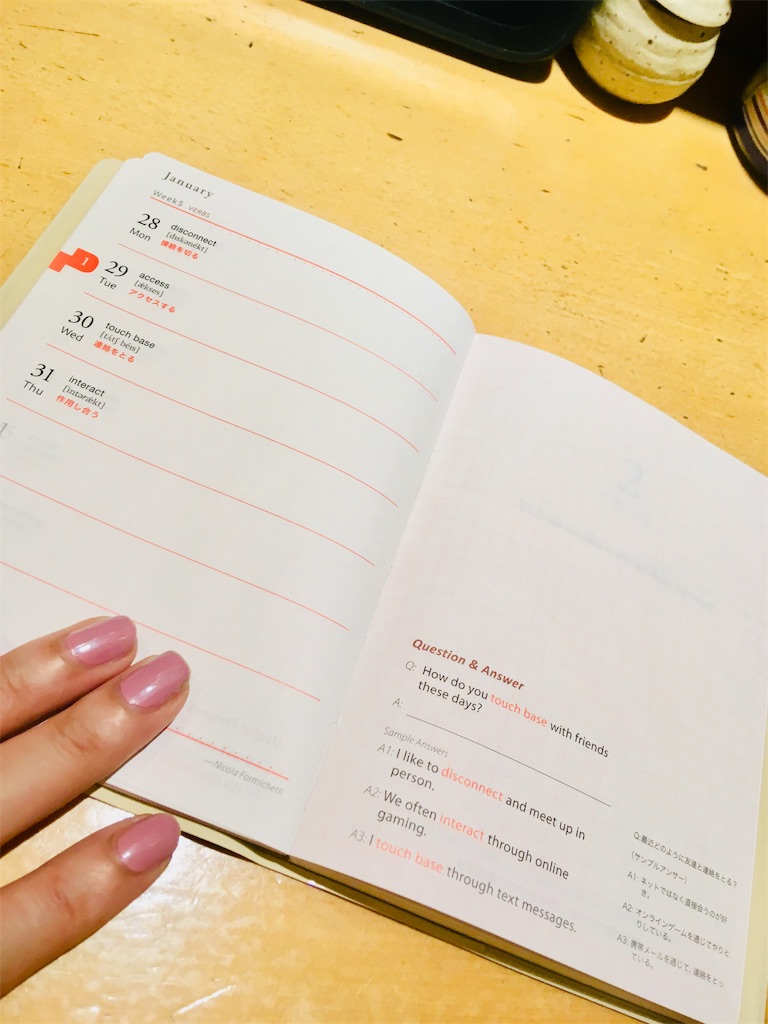 January
Week5 VERBS
28 disconnect
Mon [dɪskənékt]
接続を切る
1
29 access
Tue [ǽkses]
アクセスする
30 touch base
Wed [tʌ́tʃ béis]
連絡をとる
31 interact
Thu [ìntərǽkt]
作用し合う
1
—Nicola Formichetti
Question & Answer
Q: How do you touch base with friends
these days?
A:
Sample Answers
A1: I like to disconnect and meet up in
person.
A2: We often interact through online
gaming.
A3: I touch base through text messages.
Q: 最近どのように友達と連絡をとる？
（サンプルアンサー）
A1: ネットではなく直接会うのが好
き。
A2: オンラインゲームを通じてやりと
りしている。
A3: 携帯メールを通じて、連絡をとっ
ている。